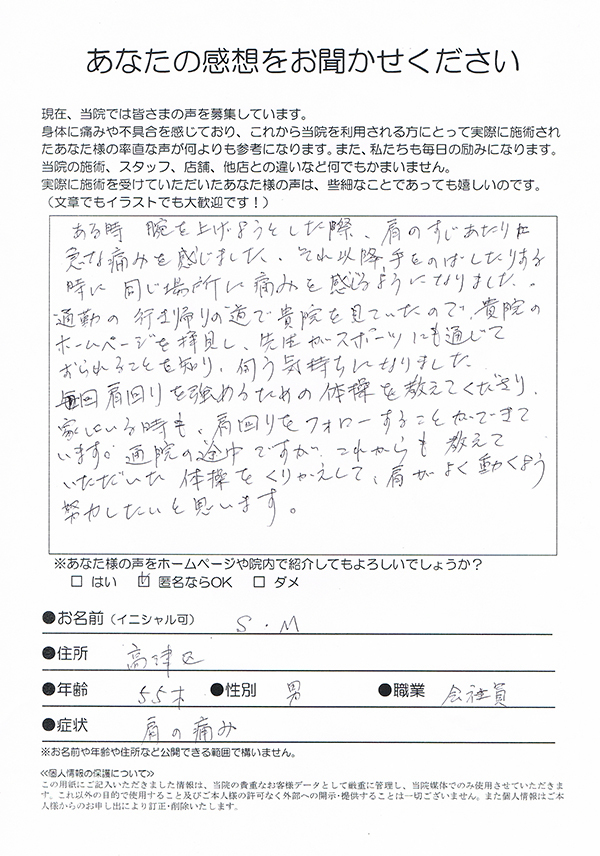 あなたの感想をお聞かせください
現在、当院では皆さまの声を募集しています。
身体に痛みや不具合を感じており、これから当院を利用される方にとって実際に施術され
たあなた様の率直な声が何よりも参考になります。また、私たちも毎日の励みになります。
当院の施術、スタッフ、店舗、他店との違いなど何でもかまいません。
実際に施術を受けていただいたあなた様の声は、些細なことであっても嬉しいのです。
（文章でもイラストでも大歓迎です！）
ある時 腕を上げようとした際、肩のすじあたりに
急な痛みを感じました、それ以降手をのばしたりする
時に 同じ場所に痛みを感るようになりました。
通勤の行き帰りの道で貴院を見ていたので、貴院の
ホームページを拝見し、先生がスポーツにも通じて
おられることを知り、伺う気持ちになりました
毎回肩回りを強めるための体操を教えてくださり、
家にいる時も、肩回りをフォローすることができて
います。通院の途中ですが、これからも教えて
いただいた 体操をくりかえして、肩がよく動くよう
努力したいと思います。
※あなた様の声をホームページや院内で紹介してもよろしいでしょうか？
□ はい ☑ 匿名ならOK □ ダメ
●お名前（イニシャル可） S.M
●住所 高津区
●年齢 55才 ●性別 男 ●職業 会社員
●症状 肩の痛み
※お名前や年齢や住所など公開できる範囲で構いません。
≪個人情報の保護について≫
この用紙にご記入いただきました情報は、当院の貴重なお客様データとして厳重に管理し、当院媒体でのみ使用させていただきま
す。これ以外の目的で使用すること及びご本人様の許可なく外部への開示・提供することは一切ございません。また個人情報はご本
人様からのお申し出により訂正・削除いたします。